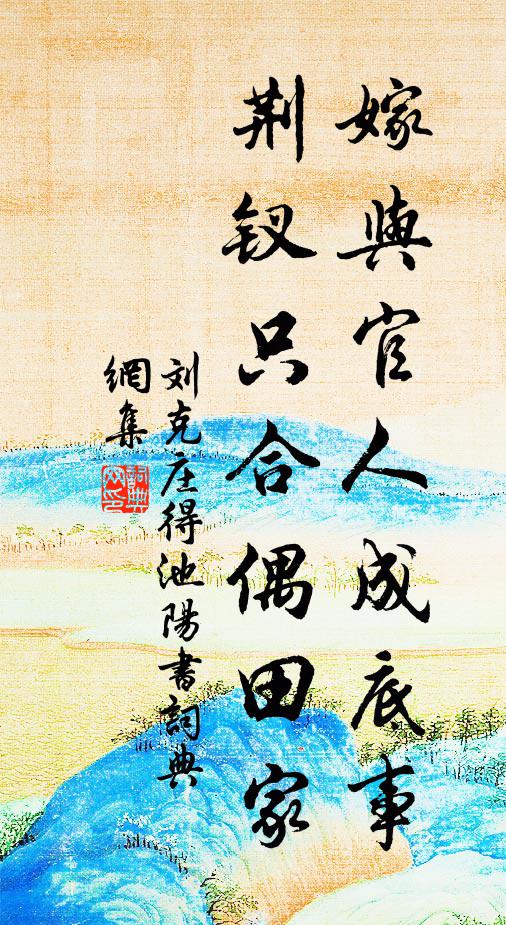 嫁與官人成底事
荆钗只合偶田家
刘克庄得池陽書詞典
網集